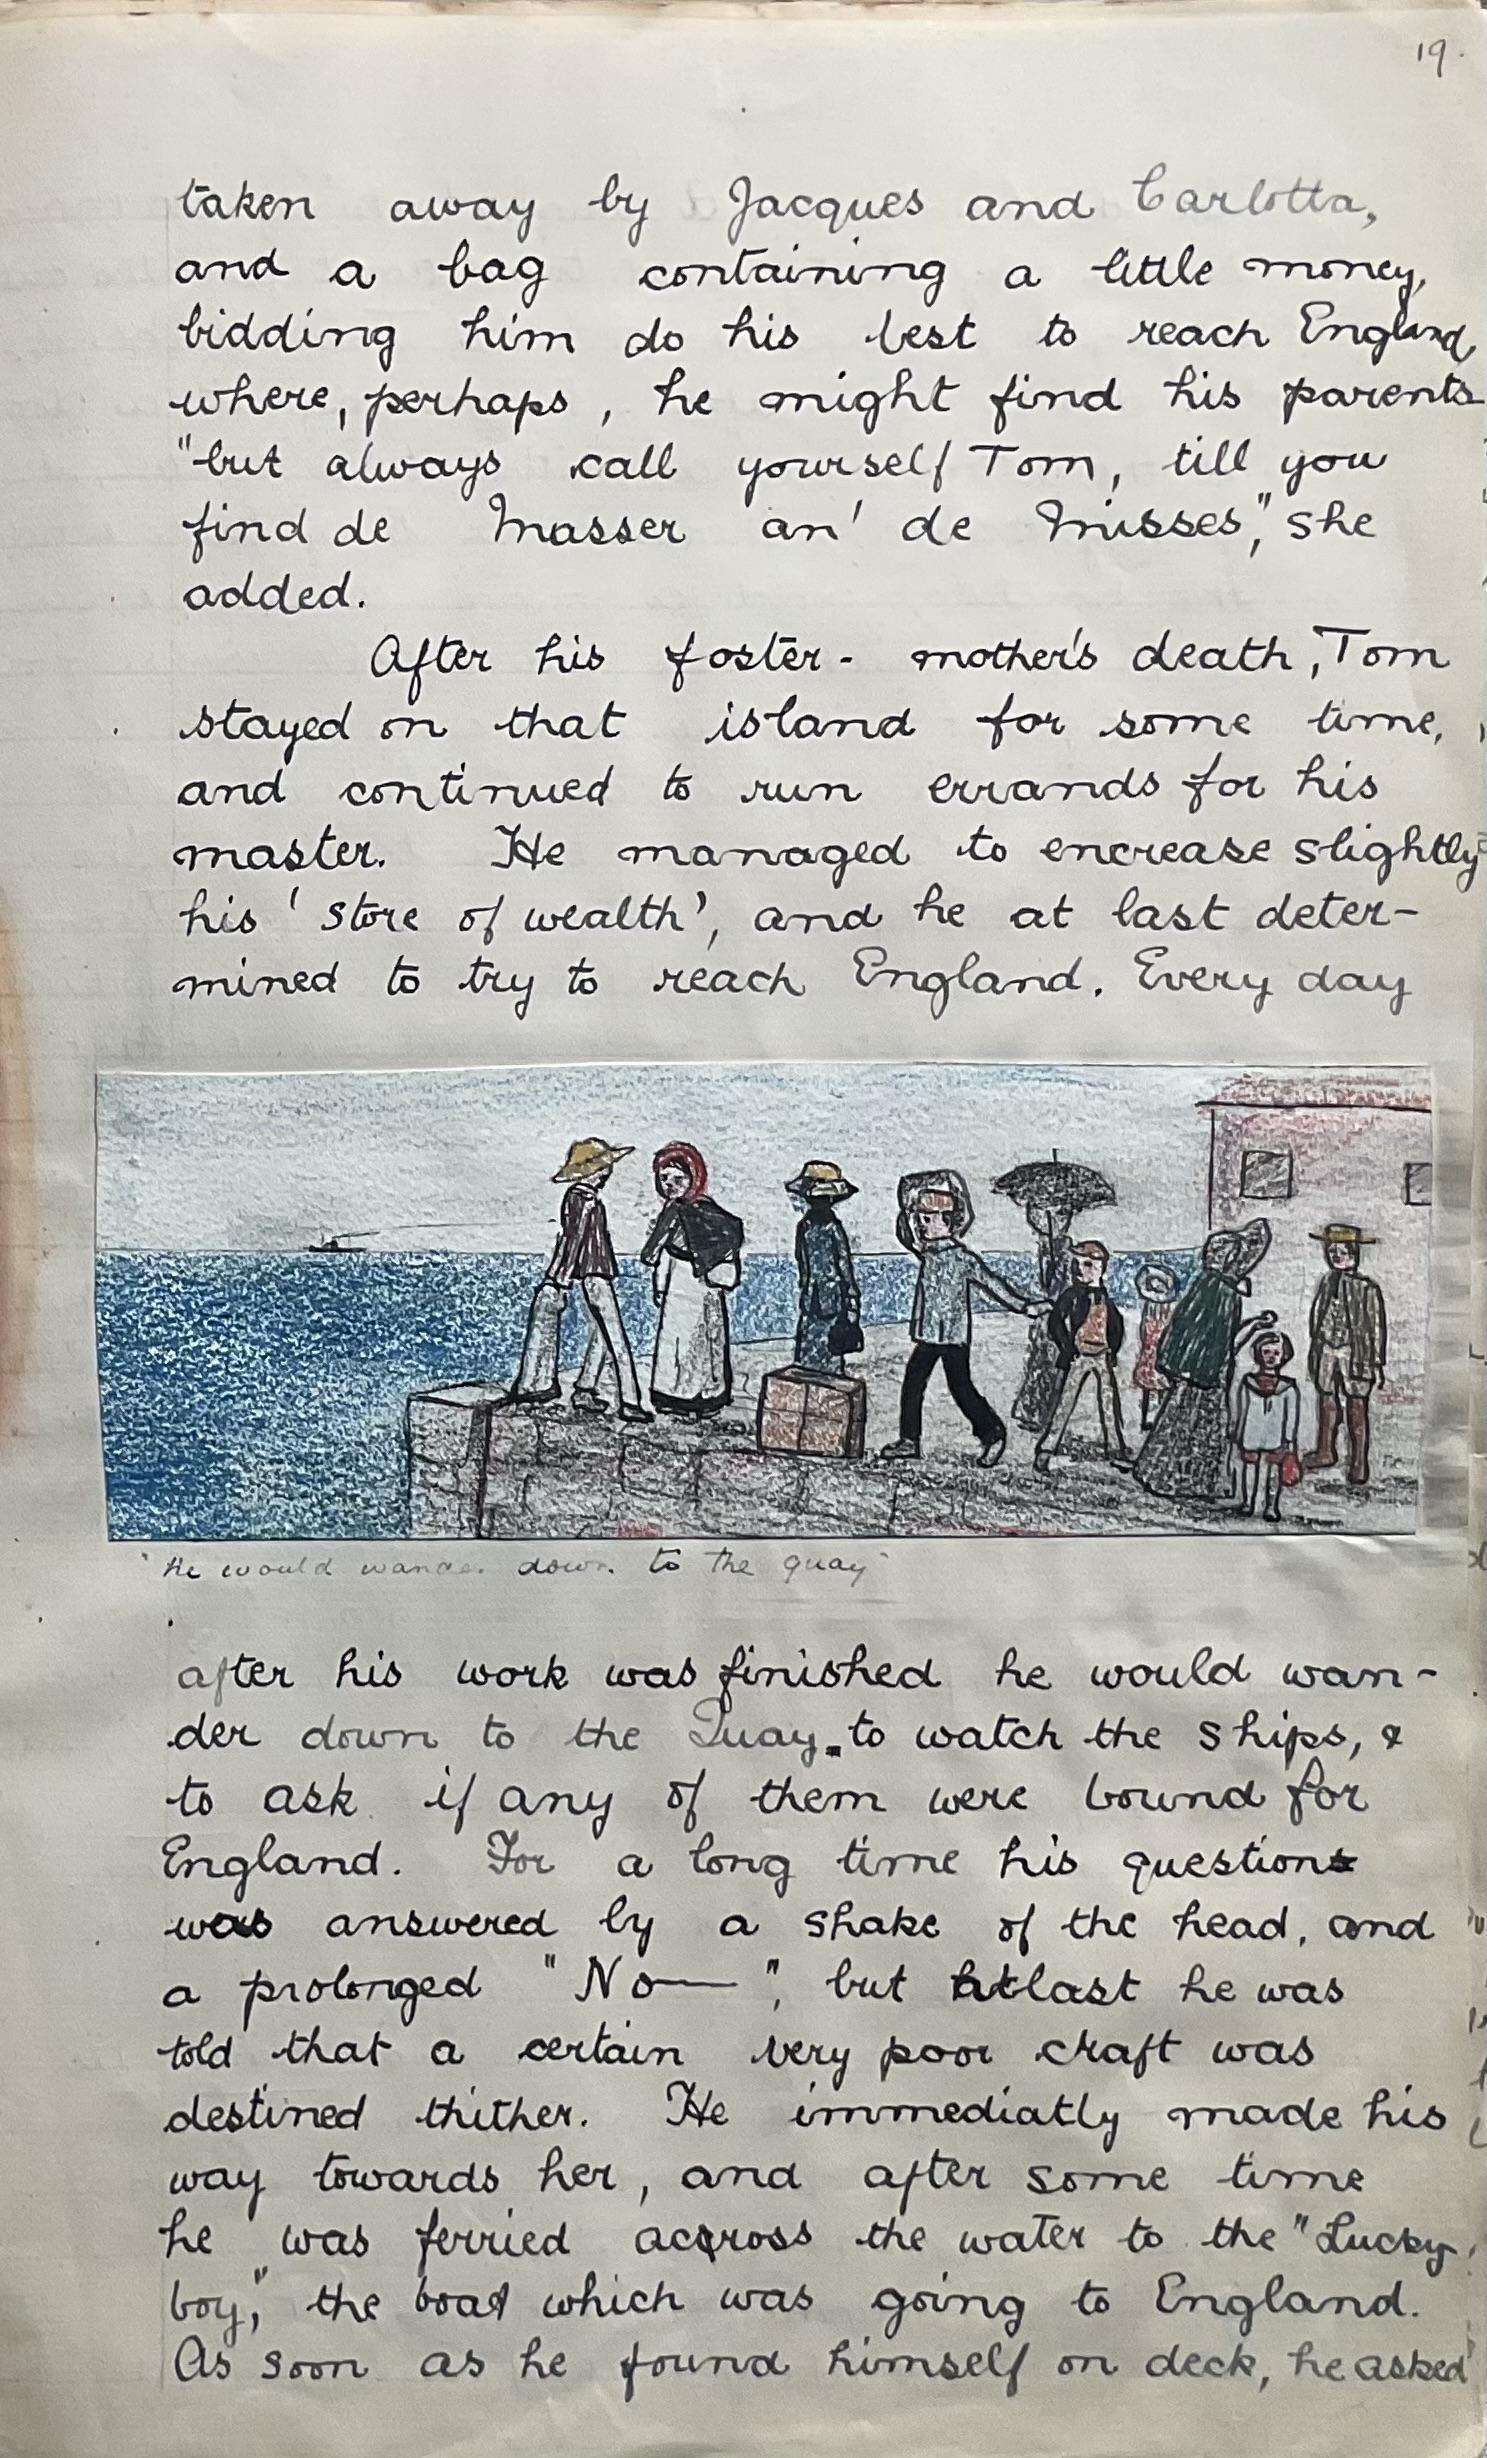 19.
taken away by Jacques and Carlotta,
and a bag containing a little money,
bidding him do his best to reach England,
where, perhaps, he might find his parents
"but always call yourself Tom, till you
find de Masser an' de Misses," she
added.
After his foster-mother's death, Tom
stayed on that island for some time,
and continued to run errands for his
master. He managed to encrease slightly
his 'store of wealth', and he at last deter-
mined to try to reach England. Every day
"He would wander down to the quay"
after his work was finished he would wan-
der down to the Quay to watch the ships, &
to ask if any of them were bound for
England. For a long time his question
was answered by a shake of the head, and
a prolonged "No—", but at last he was
told that a certain very poor craft was
destined thither. He immediatly made his
way towards her, and after some time
he was ferried across the water to the "Lucky
boy," the boat which was going to England.
As soon as he found himself on deck, he asked